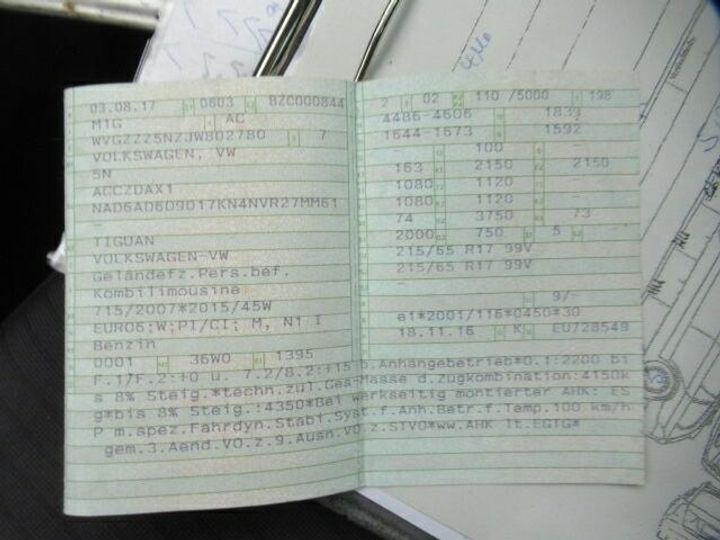 03.08.17 0603 BZC000844
M1G AC
7
VOLKSWAGEN, VW
5N
ACCZDAX1
TIGUAN
VOLKSWAGEN-VW
Geländefz.Pers.bef.
Kombilimousine
715/2007*2015/45W
EURO6;W;PI/CI; M, N1 I
Benzin
0001 36W0 1395
2 02 110 /5000 198
4486-4606
1644-1673 1592
- 100 -
163 2150 2150
1080 1120 -
1080 1120 -
74 3750 73
2000 750 5 -
215/65 R17 99V
215/65 R17 99V
-
9/-
e1*2001/116*0450*30
18.11.16 K EU728549
F.1/F.2:+0 u. 7.2/8.2:+15 b.Anhängebetrieb*O.1:2200 bi
s 8% Steig.*techn.zul.Ges-Masse d.Zugkombination:4150k
g*bis 8% Steig.:4350*Bei werkseitig montierter AHK: ES
P m.spez.Fahrdyn.Stabi.Syst.f.Anh.Betr.f.Temp.100 km/h
gem.3.Aend.VO.z.9.Ausn.VO.z.STVO*ww.AHK lt.EGTG*